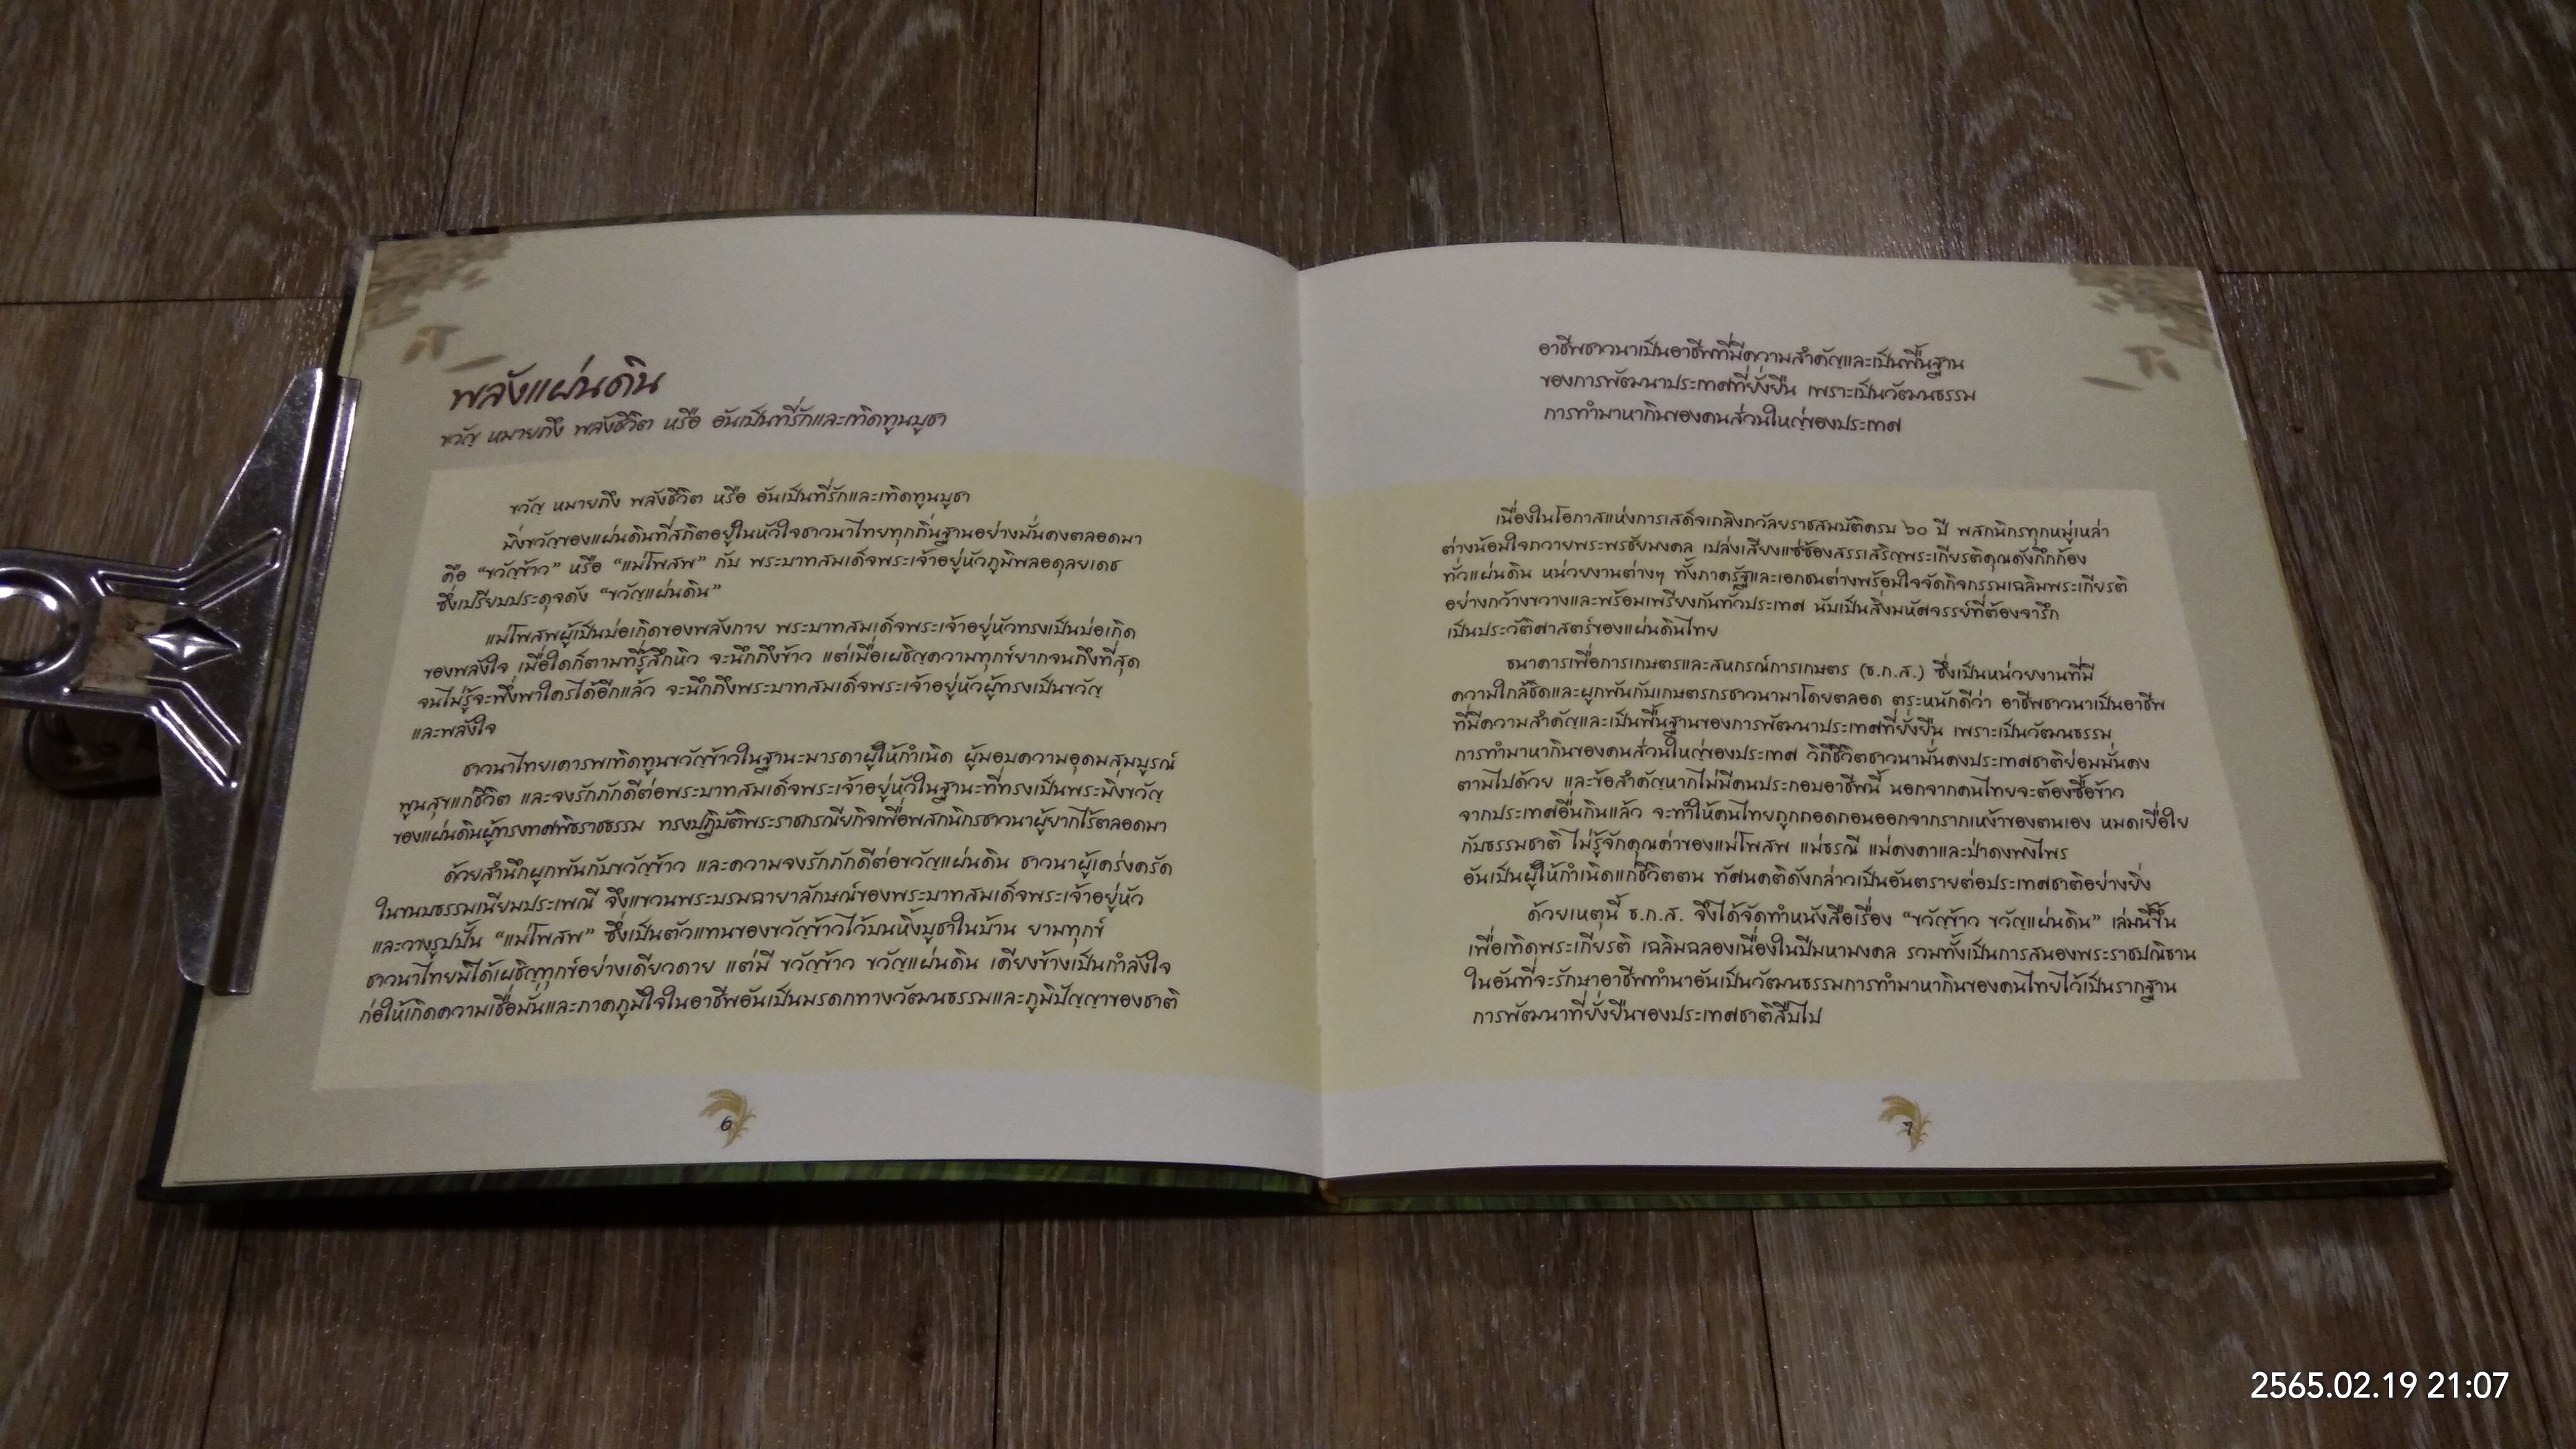 พลังแผ่นดิน
ขวัญ หมายถึง พลังชีวิต หรือ อันเป็นที่รักและเทิดทูนบูชา
ขวัญ หมายถึง พลังชีวิต หรือ อันเป็นที่รักและเทิดทูนบูชา
มิ่งขวัญของแผ่นดินที่สถิตอยู่ในหัวใจชาวนาไทยทุกถิ่นฐานอย่างมั่นคงตลอดมา
คือ “ขวัญข้าว” หรือ “แม่โพสพ” กับ พระบาทสมเด็จพระเจ้าอยู่หัวภูมิพลอดุลยเดช
ซึ่งเปรียบประดุจดัง “ขวัญแผ่นดิน”
แม่โพสพผู้เป็นบ่อเกิดของพลังกาย พระบาทสมเด็จพระเจ้าอยู่หัวทรงเป็นบ่อเกิด
ของพลังใจ เมื่อใดก็ตามที่รู้สึกหิว จะนึกถึงข้าว แต่เมื่อเผชิญความทุกข์ยากจนถึงที่สุด
จนไม่รู้จะพึ่งพาใครได้อีกแล้ว จะนึกถึงพระบาทสมเด็จพระเจ้าอยู่หัวผู้ทรงเป็นขวัญ
และพลังใจ
ชาวนาไทยเคารพเทิดทูนขวัญข้าวในฐานะมารดาผู้ให้กำเนิด ผู้มอบความอุดมสมบูรณ์
พูนสุขแก่ชีวิต และจงรักภักดีต่อพระบาทสมเด็จพระเจ้าอยู่หัวในฐานะที่ทรงเป็นพระมิ่งขวัญ
ของแผ่นดินผู้ทรงทศพิธราชธรรม ทรงปฏิบัติพระราชกรณียกิจเพื่อพสกนิกรชาวนาผู้ยากไร้ตลอดมา
ด้วยสำนึกผูกพันกับขวัญข้าว และความจงรักภักดีต่อขวัญแผ่นดิน ชาวนาผู้เคร่งครัด
ในขนบธรรมเนียมประเพณี จึงแขวนพระบรมฉายาลักษณ์ของพระบาทสมเด็จพระเจ้าอยู่หัว
และวางรูปปั้น “แม่โพสพ” ซึ่งเป็นตัวแทนของขวัญข้าวไว้บนหิ้งบูชาในบ้าน ยามทุกข์
ชาวนาไทยมิได้เผชิญทุกข์อย่างเดียวดาย แต่มี ขวัญข้าว ขวัญแผ่นดิน เคียงข้างเป็นกำลังใจ
ก่อให้เกิดความเชื่อมั่นและภาคภูมิใจในอาชีพอันเป็นมรดกทางวัฒนธรรมและภูมิปัญญาของชาติ
6
อาชีพชาวนาเป็นอาชีพที่มีความสำคัญและเป็นพื้นฐาน
ของการพัฒนาประเทศที่ยั่งยืน เพราะเป็นวัฒนธรรม
การทำมาหากินของคนส่วนใหญ่ของประเทศ
เนื่องในโอกาสแห่งการเสด็จเถลิงถวัลยราชสมบัติครบ ๖๐ ปี พสกนิกรทุกหมู่เหล่า
ต่างน้อมใจถวายพระพรชัยมงคล เปล่งเสียงแซ่ซ้องสรรเสริญพระเกียรติคุณดังกึกก้อง
ทั่วแผ่นดิน หน่วยงานต่างๆ ทั้งภาครัฐและเอกชนต่างพร้อมใจจัดกิจกรรมเฉลิมพระเกียรติ
อย่างกว้างขวางและพร้อมเพรียงกันทั่วประเทศ นับเป็นสิ่งมหัศจรรย์ที่ต้องจารึก
เป็นประวัติศาสตร์ของแผ่นดินไทย
ธนาคารเพื่อการเกษตรและสหกรณ์การเกษตร (ธ.ก.ส.) ซึ่งเป็นหน่วยงานที่มี
ความใกล้ชิดและผูกพันกับเกษตรกรชาวนามาโดยตลอด ตระหนักดีว่า อาชีพชาวนาเป็นอาชีพ
ที่มีความสำคัญและเป็นพื้นฐานของการพัฒนาประเทศที่ยั่งยืน เพราะเป็นวัฒนธรรม
การทำมาหากินของคนส่วนใหญ่ของประเทศ วิถีชีวิตชาวนามั่นคงประเทศชาติย่อมมั่นคง
ตามไปด้วย และข้อสำคัญหากไม่มีคนประกอบอาชีพนี้ นอกจากคนไทยจะต้องซื้อข้าว
จากประเทศอื่นกินแล้ว จะทำให้คนไทยถูกถอดถอนออกจากรากเหง้าของตนเอง หมดเยื่อใย
กับธรรมชาติ ไม่รู้จักคุณค่าของแม่โพสพ แม่ธรณี แม่คงคาและป่าดงพงไพร
อันเป็นผู้ให้กำเนิดแก่ชีวิตตน ทัศนคติดังกล่าวเป็นอันตรายต่อประเทศชาติอย่างยิ่ง
ด้วยเหตุนี้ ธ.ก.ส. จึงได้จัดทำหนังสือเรื่อง “ขวัญข้าว ขวัญแผ่นดิน” เล่มนี้ขึ้น
เพื่อเทิดพระเกียรติ เฉลิมฉลองเนื่องในปีมหามงคล รวมทั้งเป็นการสนองพระราชปณิธาน
ในอันที่จะรักษาอาชีพทำนาอันเป็นวัฒนธรรมการทำมาหากินของคนไทยไว้เป็นรากฐาน
การพัฒนาที่ยั่งยืนของประเทศชาติสืบไป
7
2565.02.19 21:07